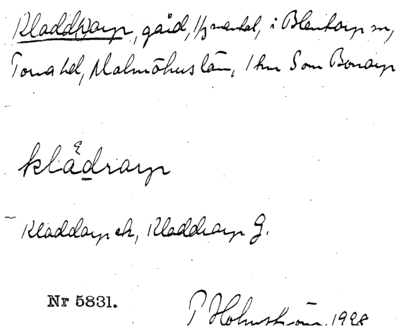 Kladdrarp, gård, 1/2 mantal, i Blentarp sn,
Torna hd, Malmöhus län, 1 km S om Bonarp
klädrarp
Kladdarp ek, Kladdrarp G.
Nr 5831.
P Holmström 1928